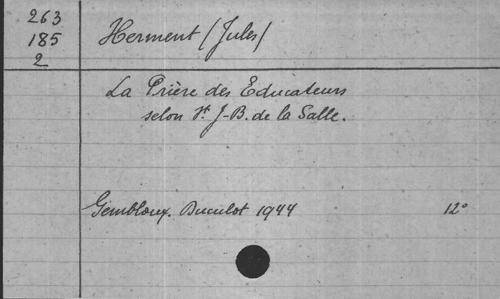 263
185
2
Herment (Jules)
La Prière des Educateurs
selon St J-B. de la Salle.
Gembloux. Duculot 1944 12°